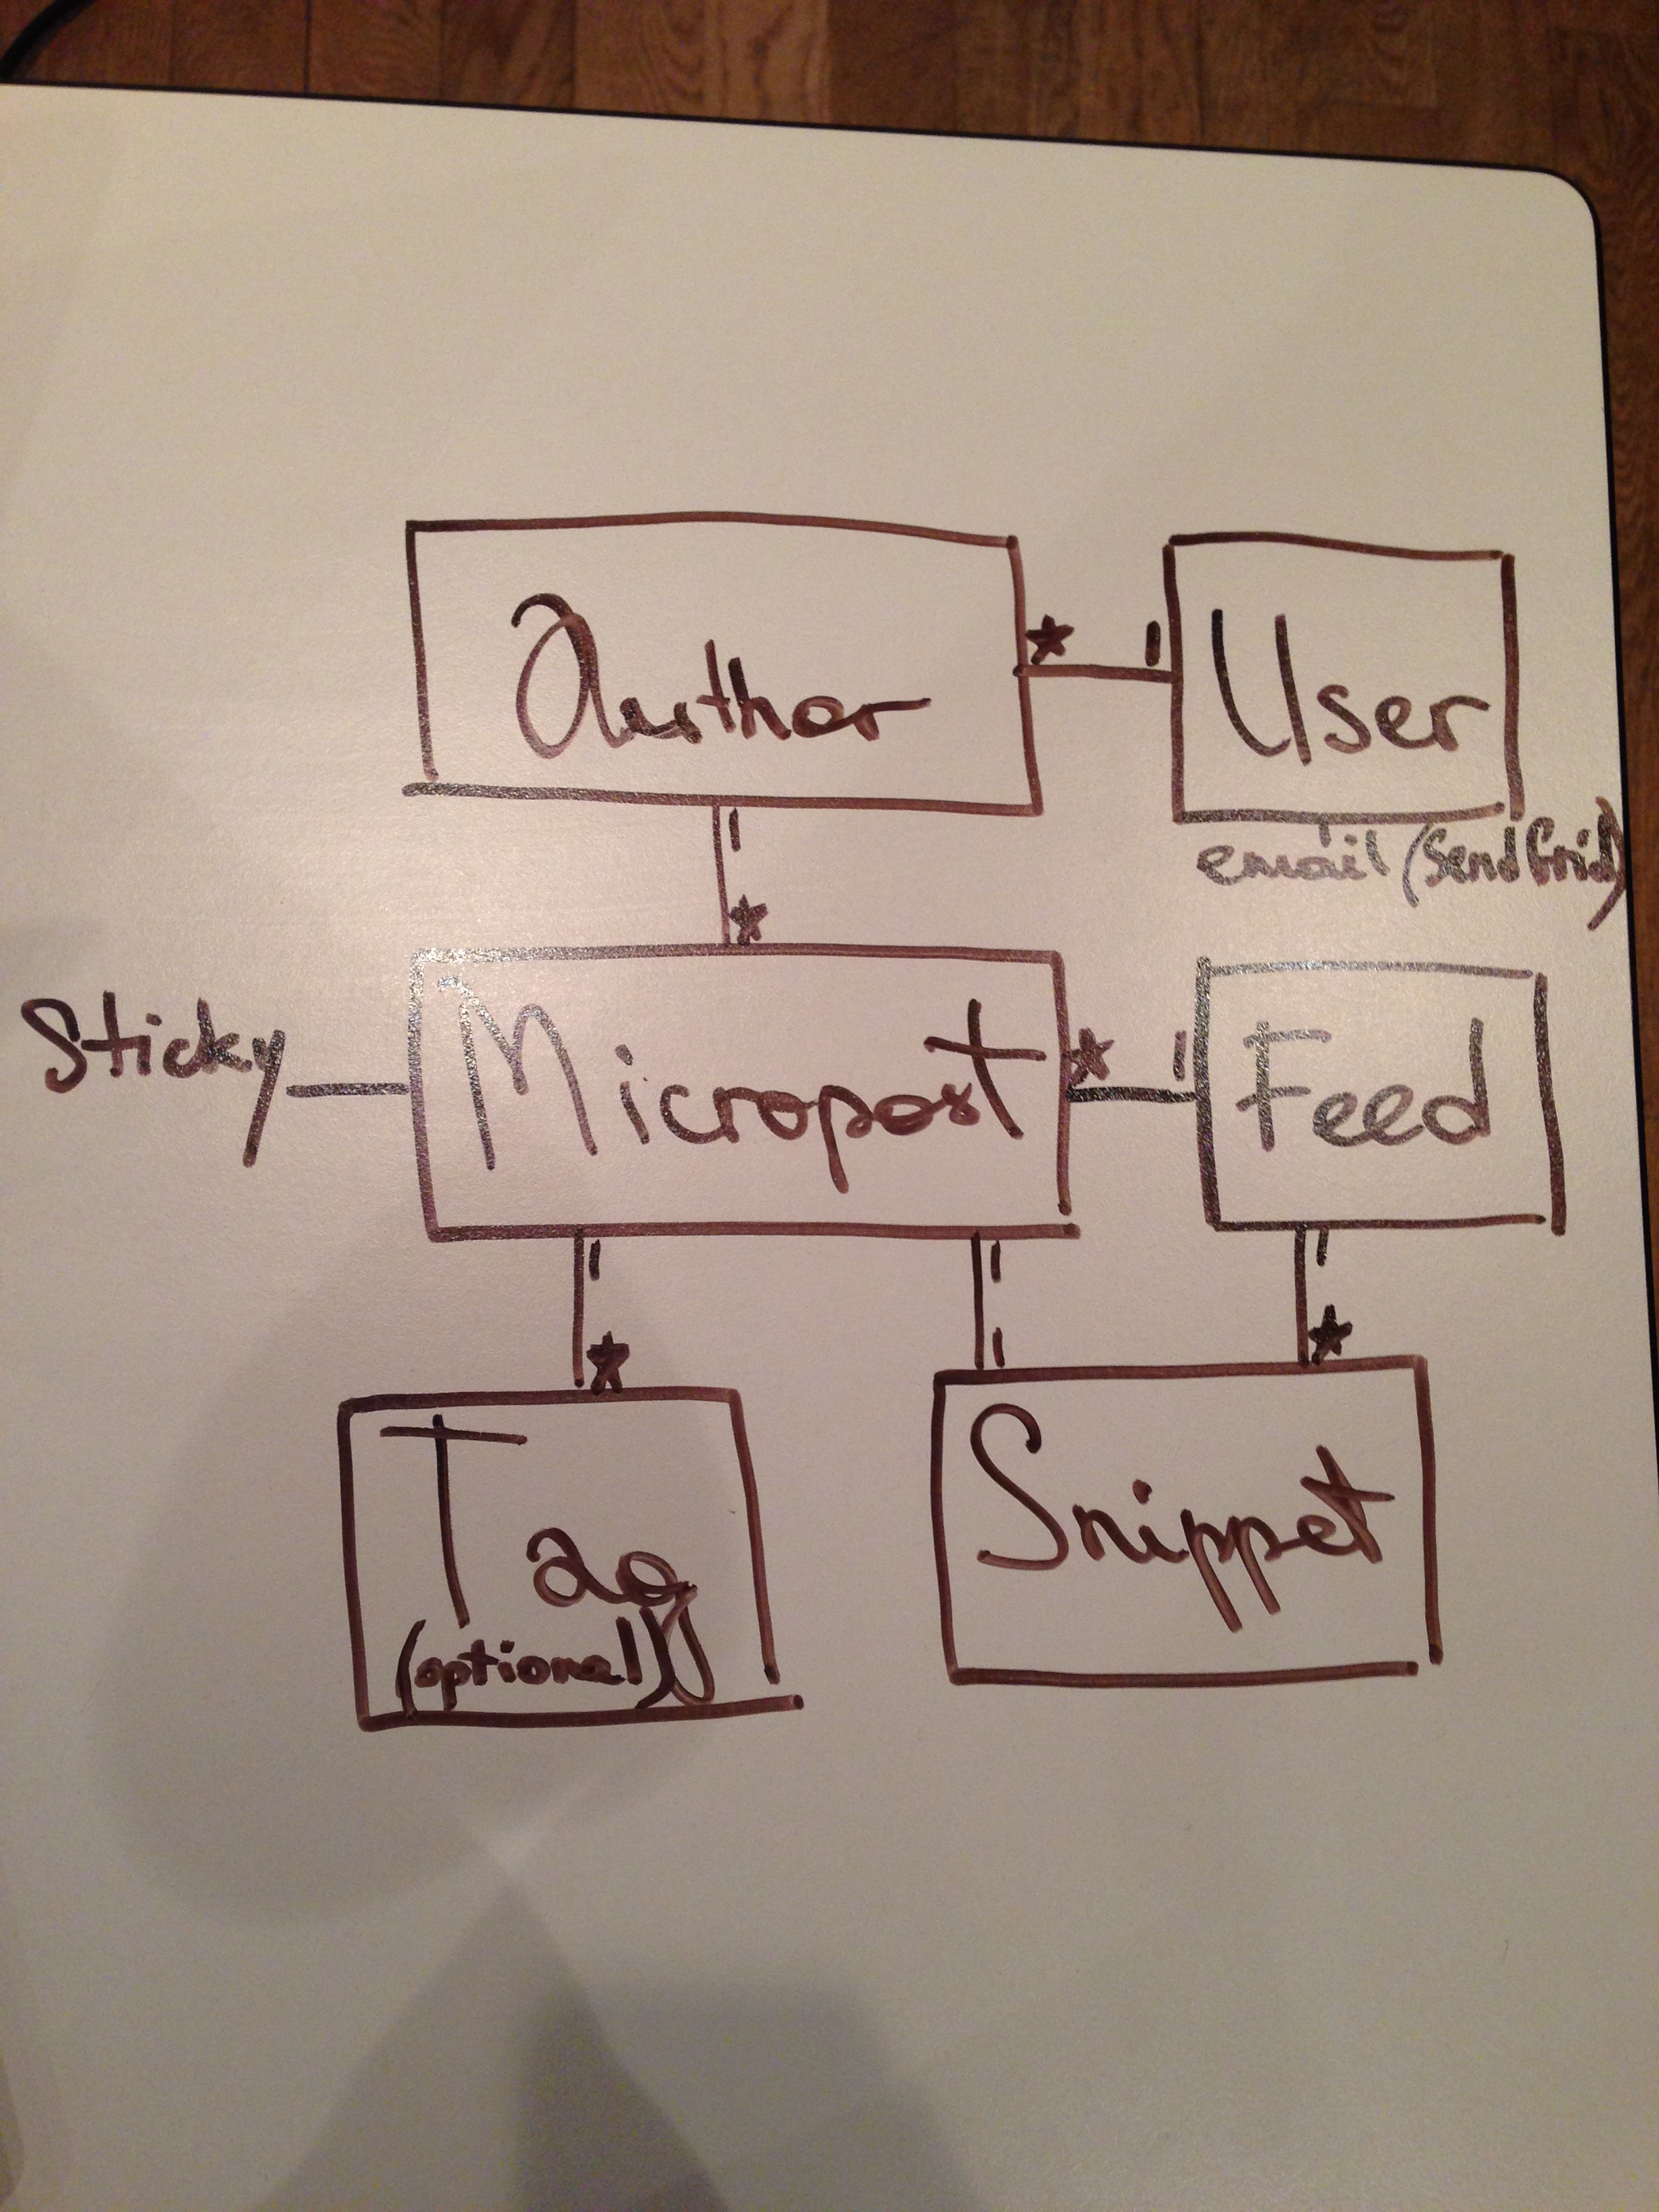 Author
* 1
User
1
email (SendGrid)
*
Sticky
Micropost
* 1
Feed
1
1
1
*
1
*
Tag
(optional)
Snippet